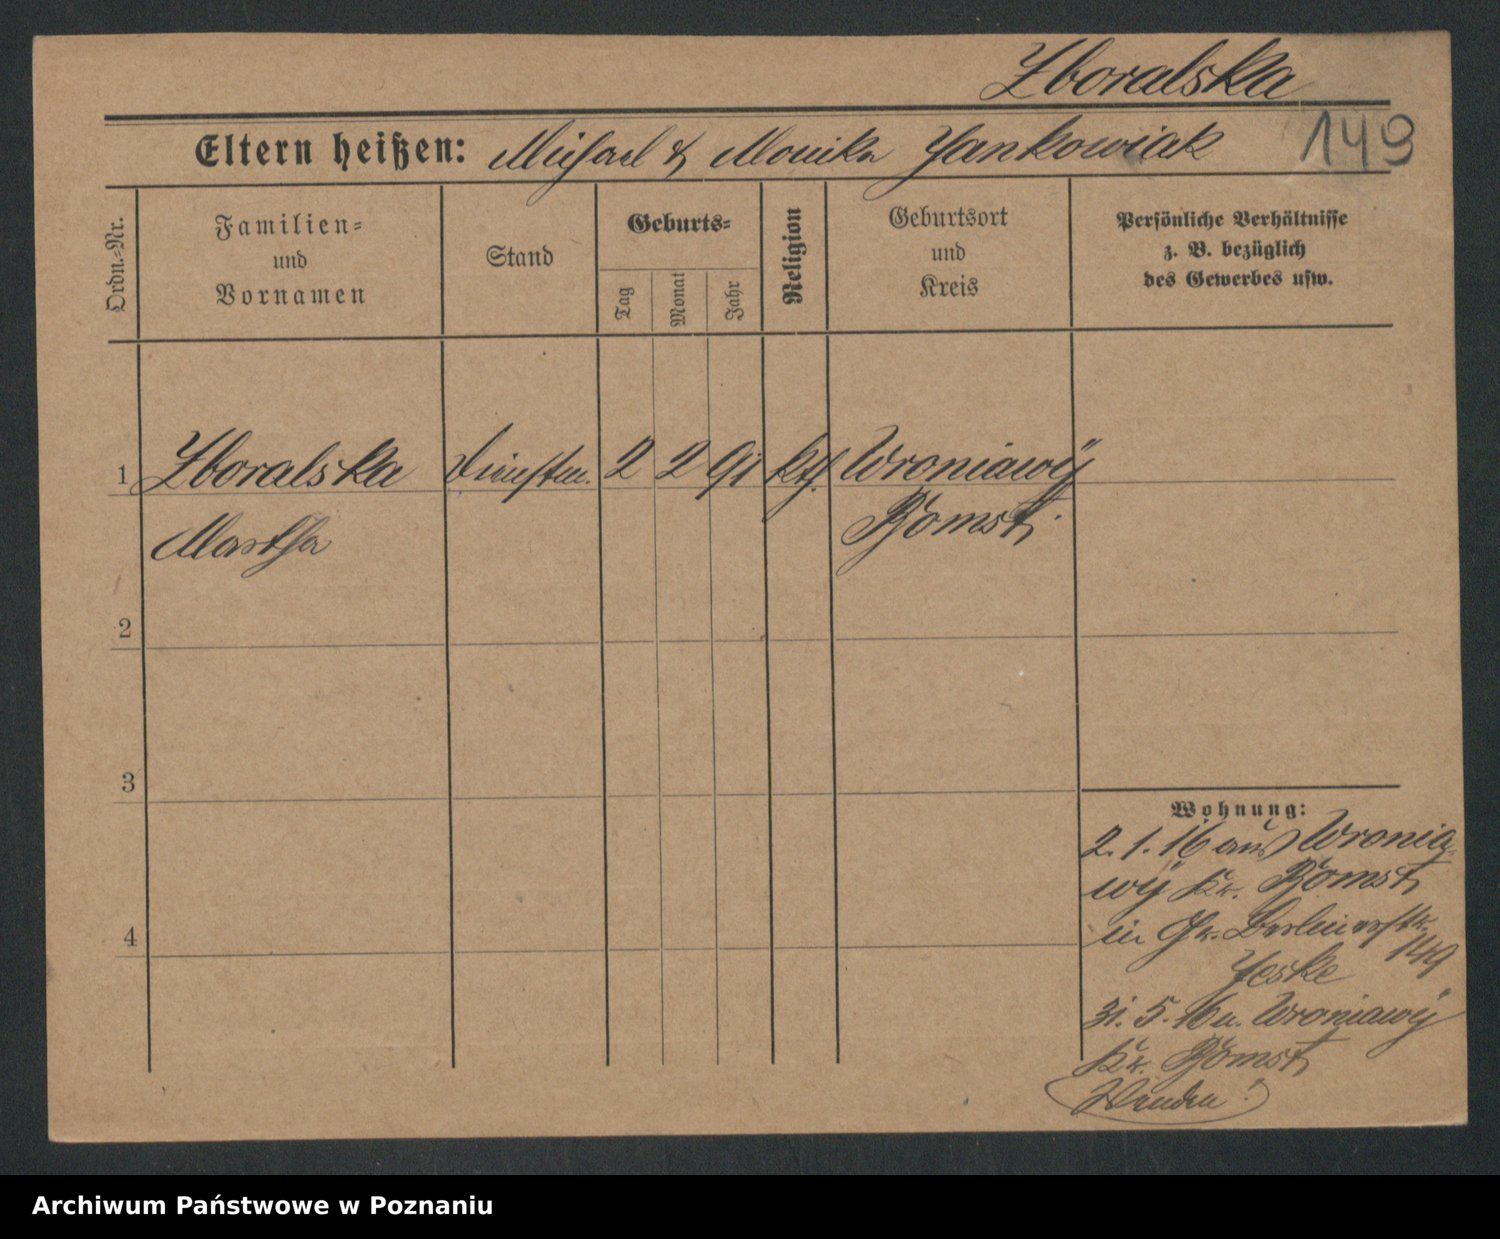 Zboralska
Eltern heißen: Michael & Monika Yankowiak
149
Ordn.=Nr.
Familien=
und
Vornamen
Stand
Geburts=
Tag
Monat
Jahr
Religion
Geburtsort
und
Kreis
Persönliche Verhältnisse
z. B. bezüglich
des Gewerbes usw.
1 Zboralska Dienstm. 2 2 91 kth. Wroniawÿ
Martha Bomst.
2
3
4
Wohnung:
2. 1. 16 aus Wronia=
wÿ Kr. Bomst
in Gr. Berlinerstr.
149
Jeske
31. 5. 16 n. Wroniawÿ
Kr. Bomst
Wenden!
Archiwum Państwowe w Poznaniu